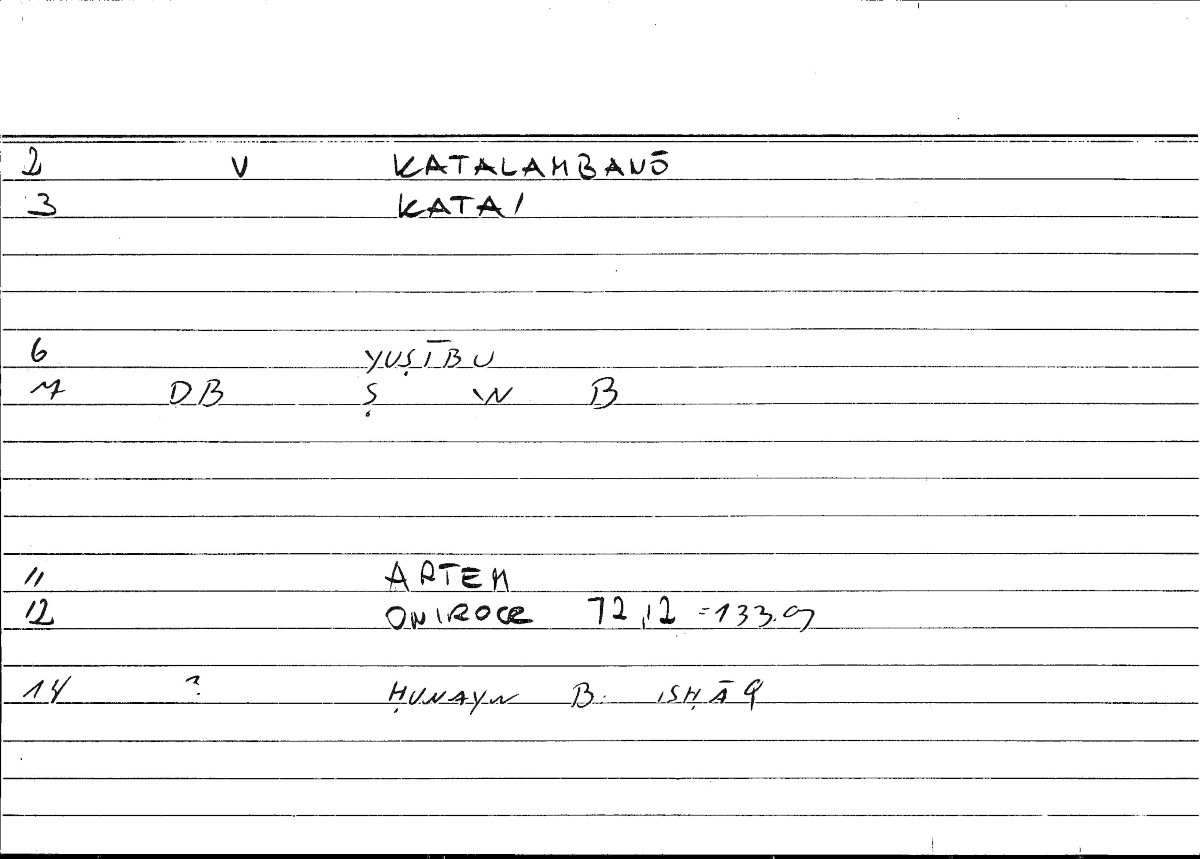 2 V KATALAMBANŌ
3 KATAI
6 YUṢĪBU
7 DB Ṣ W B
11 ARTEM
12 ONIROCR 72,12 =133.9
14 ? ḤUNAYN B. ISḤĀQ